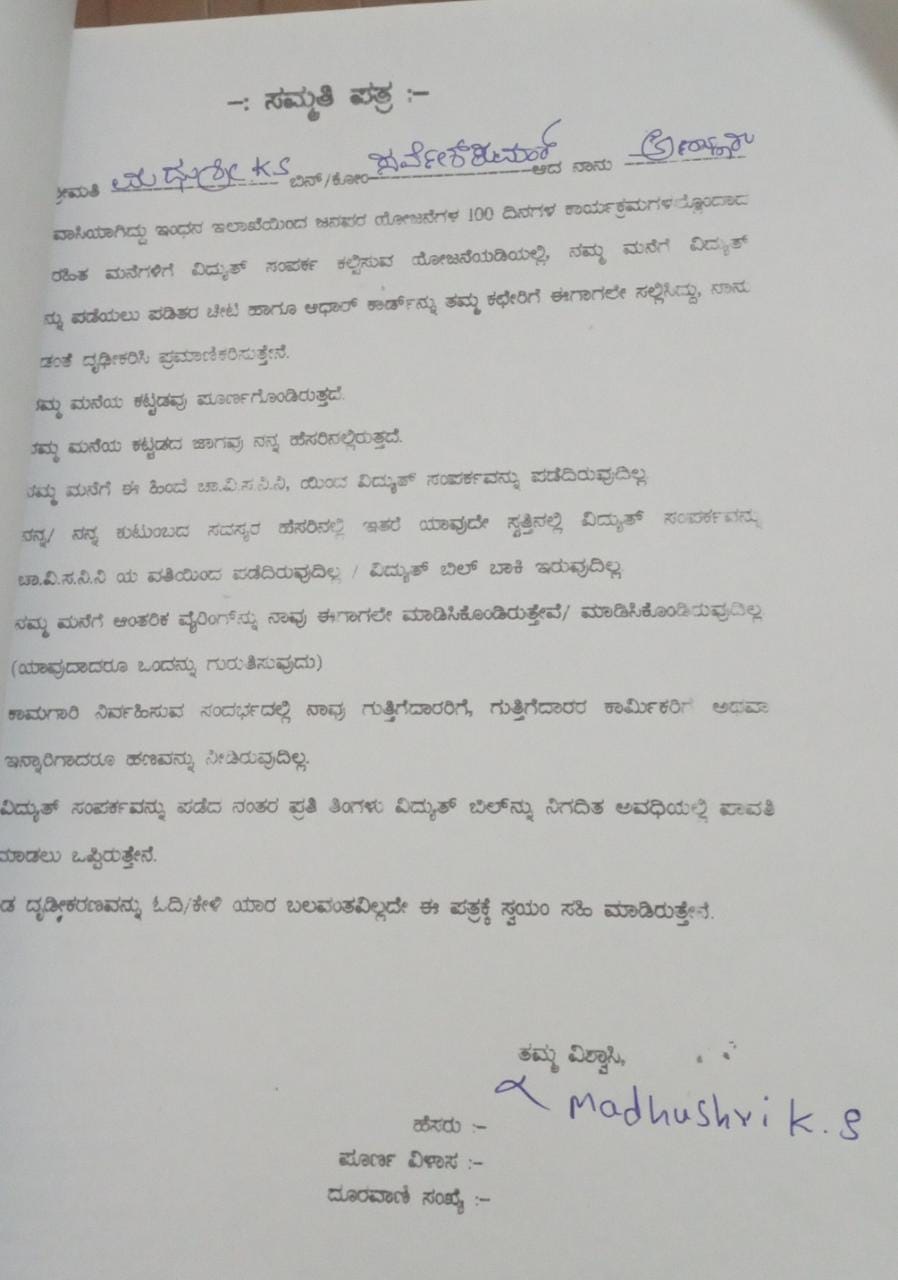 -: ಸಮ್ಮತಿ ಪತ್ರ :-
ಶ್ರೀಮತಿ ಮಧುಶ್ರೀ K.S ಬಿನ್/ಕೋಂ ಆದ ನಾನು
ವಾಸಿಯಾಗಿದ್ದು ಇಂಧನ ಇಲಾಖೆಯಿಂದ ಜನಪರ ಯೋಜನೆಗಳ 100 ದಿನಗಳ ಕಾರ್ಯಕ್ರಮಗಳಲ್ಲೊಂದಾದ
ರಹಿತ ಮನೆಗಳಿಗೆ ವಿದ್ಯುತ್ ಸಂಪರ್ಕ ಕಲ್ಪಿಸುವ ಯೋಜನೆಯಡಿಯಲ್ಲಿ, ನಮ್ಮ ಮನೆಗೆ ವಿದ್ಯುತ್
ನ್ನು ಪಡೆಯಲು ಪಡಿತರ ಚೀಟಿ ಹಾಗೂ ಆಧಾರ್ ಕಾರ್ಡ್‌ನ್ನು ತಮ್ಮ ಕಛೇರಿಗೆ ಈಗಾಗಲೇ ಸಲ್ಲಿಸಿದ್ದು, ನಾನು
ಡಂತೆ ದೃಢೀಕರಿಸಿ ಪ್ರಮಾಣಿಕರಿಸುತ್ತೇನೆ.
ನಮ್ಮ ಮನೆಯ ಕಟ್ಟಡವು ಪೂರ್ಣಗೊಂಡಿರುತ್ತದೆ.
ನಮ್ಮ ಮನೆಯ ಕಟ್ಟಡದ ಜಾಗವು ನನ್ನ ಹೆಸರಿನಲ್ಲಿರುತ್ತದೆ.
ನಮ್ಮ ಮನೆಗೆ ಈ ಹಿಂದೆ ಚಾ.ವಿ.ಸ.ನಿ.ನಿ, ಯಿಂದ ವಿದ್ಯುತ್ ಸಂಪರ್ಕವನ್ನು ಪಡೆದಿರುವುದಿಲ್ಲ.
ನನ್ನ/ ನನ್ನ ಕುಟುಂಬದ ಸದಸ್ಯರ ಹೆಸರಿನಲ್ಲಿ ಇತರೆ ಯಾವುದೇ ಸ್ವತ್ತಿನಲ್ಲಿ ವಿದ್ಯುತ್ ಸಂಪರ್ಕವನ್ನು
ಚಾ.ವಿ.ಸ.ನಿ.ನಿ ಯ ವತಿಯಿಂದ ಪಡೆದಿರುವುದಿಲ್ಲ / ವಿದ್ಯುತ್ ಬಿಲ್ ಬಾಕಿ ಇರುವುದಿಲ್ಲ.
ನಮ್ಮ ಮನೆಗೆ ಆಂತರಿಕ ವೈರಿಂಗ್‌ನ್ನು ನಾವು ಈಗಾಗಲೇ ಮಾಡಿಸಿಕೊಂಡಿರುತ್ತೇವೆ/ ಮಾಡಿಸಿಕೊಂಡಿರುವುದಿಲ್ಲ
(ಯಾವುದಾದರೂ ಒಂದನ್ನು ಗುರುತಿಸುವುದು)
ಕಾಮಗಾರಿ ನಿರ್ವಹಿಸುವ ಸಂದರ್ಭದಲ್ಲಿ ನಾವು ಗುತ್ತಿಗೆದಾರರಿಗೆ, ಗುತ್ತಿಗೆದಾರರ ಕಾರ್ಮಿಕರಿಗೆ ಅಥವಾ
ಇನ್ನಾರಿಗಾದರೂ ಹಣವನ್ನು ನೀಡಿರುವುದಿಲ್ಲ.
ವಿದ್ಯುತ್ ಸಂಪರ್ಕವನ್ನು ಪಡೆದ ನಂತರ ಪ್ರತಿ ತಿಂಗಳು ವಿದ್ಯುತ್ ಬಿಲ್‌ನ್ನು ನಿಗದಿತ ಅವಧಿಯಲ್ಲಿ ಪಾವತಿ
ಮಾಡಲು ಒಪ್ಪಿರುತ್ತೇನೆ.
ಡ ದೃಢೀಕರಣವನ್ನು ಓದಿ/ಕೇಳಿ ಯಾರ ಬಲವಂತವಿಲ್ಲದೇ ಈ ಪತ್ರಕ್ಕೆ ಸ್ವಯಂ ಸಹಿ ಮಾಡಿರುತ್ತೇನೆ.
ತಮ್ಮ ವಿಶ್ವಾಸಿ,
Madhushri K.S
ಹೆಸರು :-
ಪೂರ್ಣ ವಿಳಾಸ :-
ದೂರವಾಣಿ ಸಂಖ್ಯೆ :-